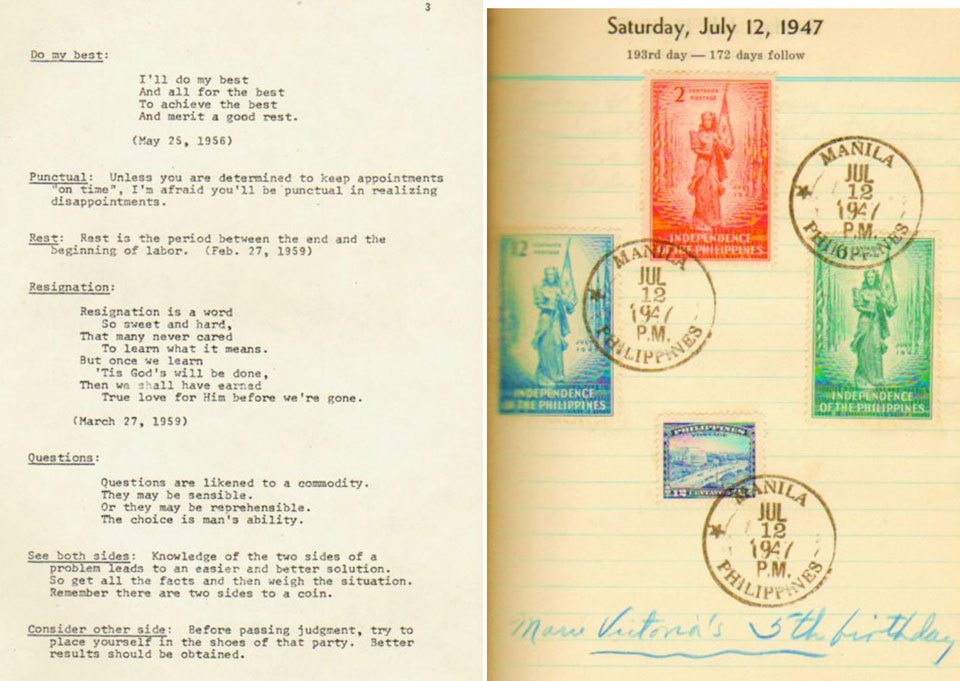 3
Do my best:
I'll do my best
And all for the best
To achieve the best
And merit a good rest.
(May 25, 1956)
Punctual: Unless you are determined to keep appointments
"on time", I'm afraid you'll be punctual in realizing
disappointments.
Rest: Rest is the period between the end and the
beginning of labor. (Feb. 27, 1959)
Resignation:
Resignation is a word
So sweet and hard,
That many never cared
To learn what it means.
But once we learn
'Tis God's will be done,
Then we shall have earned
True love for Him before we're gone.
(March 27, 1959)
Questions:
Questions are likened to a commodity.
They may be sensible.
Or they may be reprehensible.
The choice is man's ability.
See both sides: Knowledge of the two sides of a
problem leads to an easier and better solution.
So get all the facts and then weigh the situation.
Remember there are two sides to a coin.
Consider other side: Before passing judgment, try to
place yourself in the shoes of that party. Better
results should be obtained.
Saturday, July 12, 1947
193rd day — 172 days follow
2 CENTAVOS
POSTAGE
INDEPENDENCE
OF THE PHILIPPINES
MANILA
JUL
12
1947
P.M.
PHILIPPINES
12 CENTAVOS
POSTAGE
INDEPENDENCE
OF THE PHILIPPINES
MANILA
JUL
12
1947
P.M.
PHILIPPINES
INDEPENDENCE
OF THE PHILIPPINES
PHILIPPINES
POSTAGE
12 CENTAVOS
MANILA
JUL
12
1947
P.M.
PHILIPPINES
Marie Victoria's 5th birthday